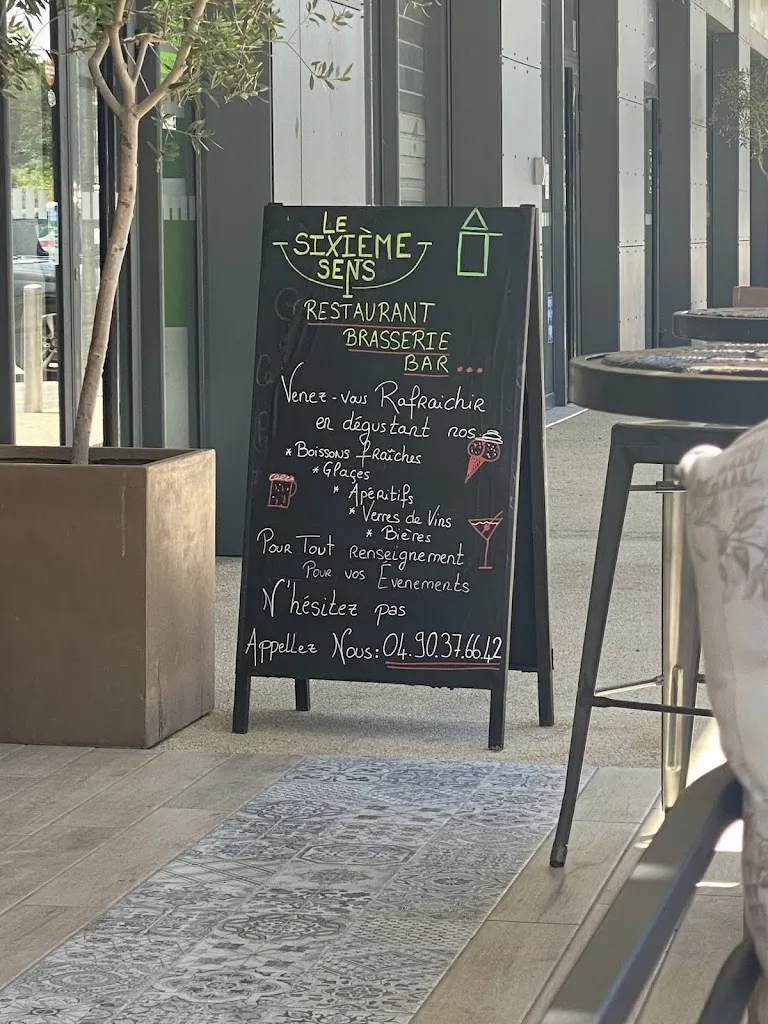 LE
SIXIÈME
SENS
RESTAURANT
BRASSERIE
BAR...
Venez-vous Rafraichir
en dégustant nos
* Boissons fraîches
* Glaçes
* Apéritifs
* Verres de Vins
* Bières
Pour Tout Renseignement
Pour vos Évenements
N'hésitez pas
Appellez Nous: 04.90.37.66.42